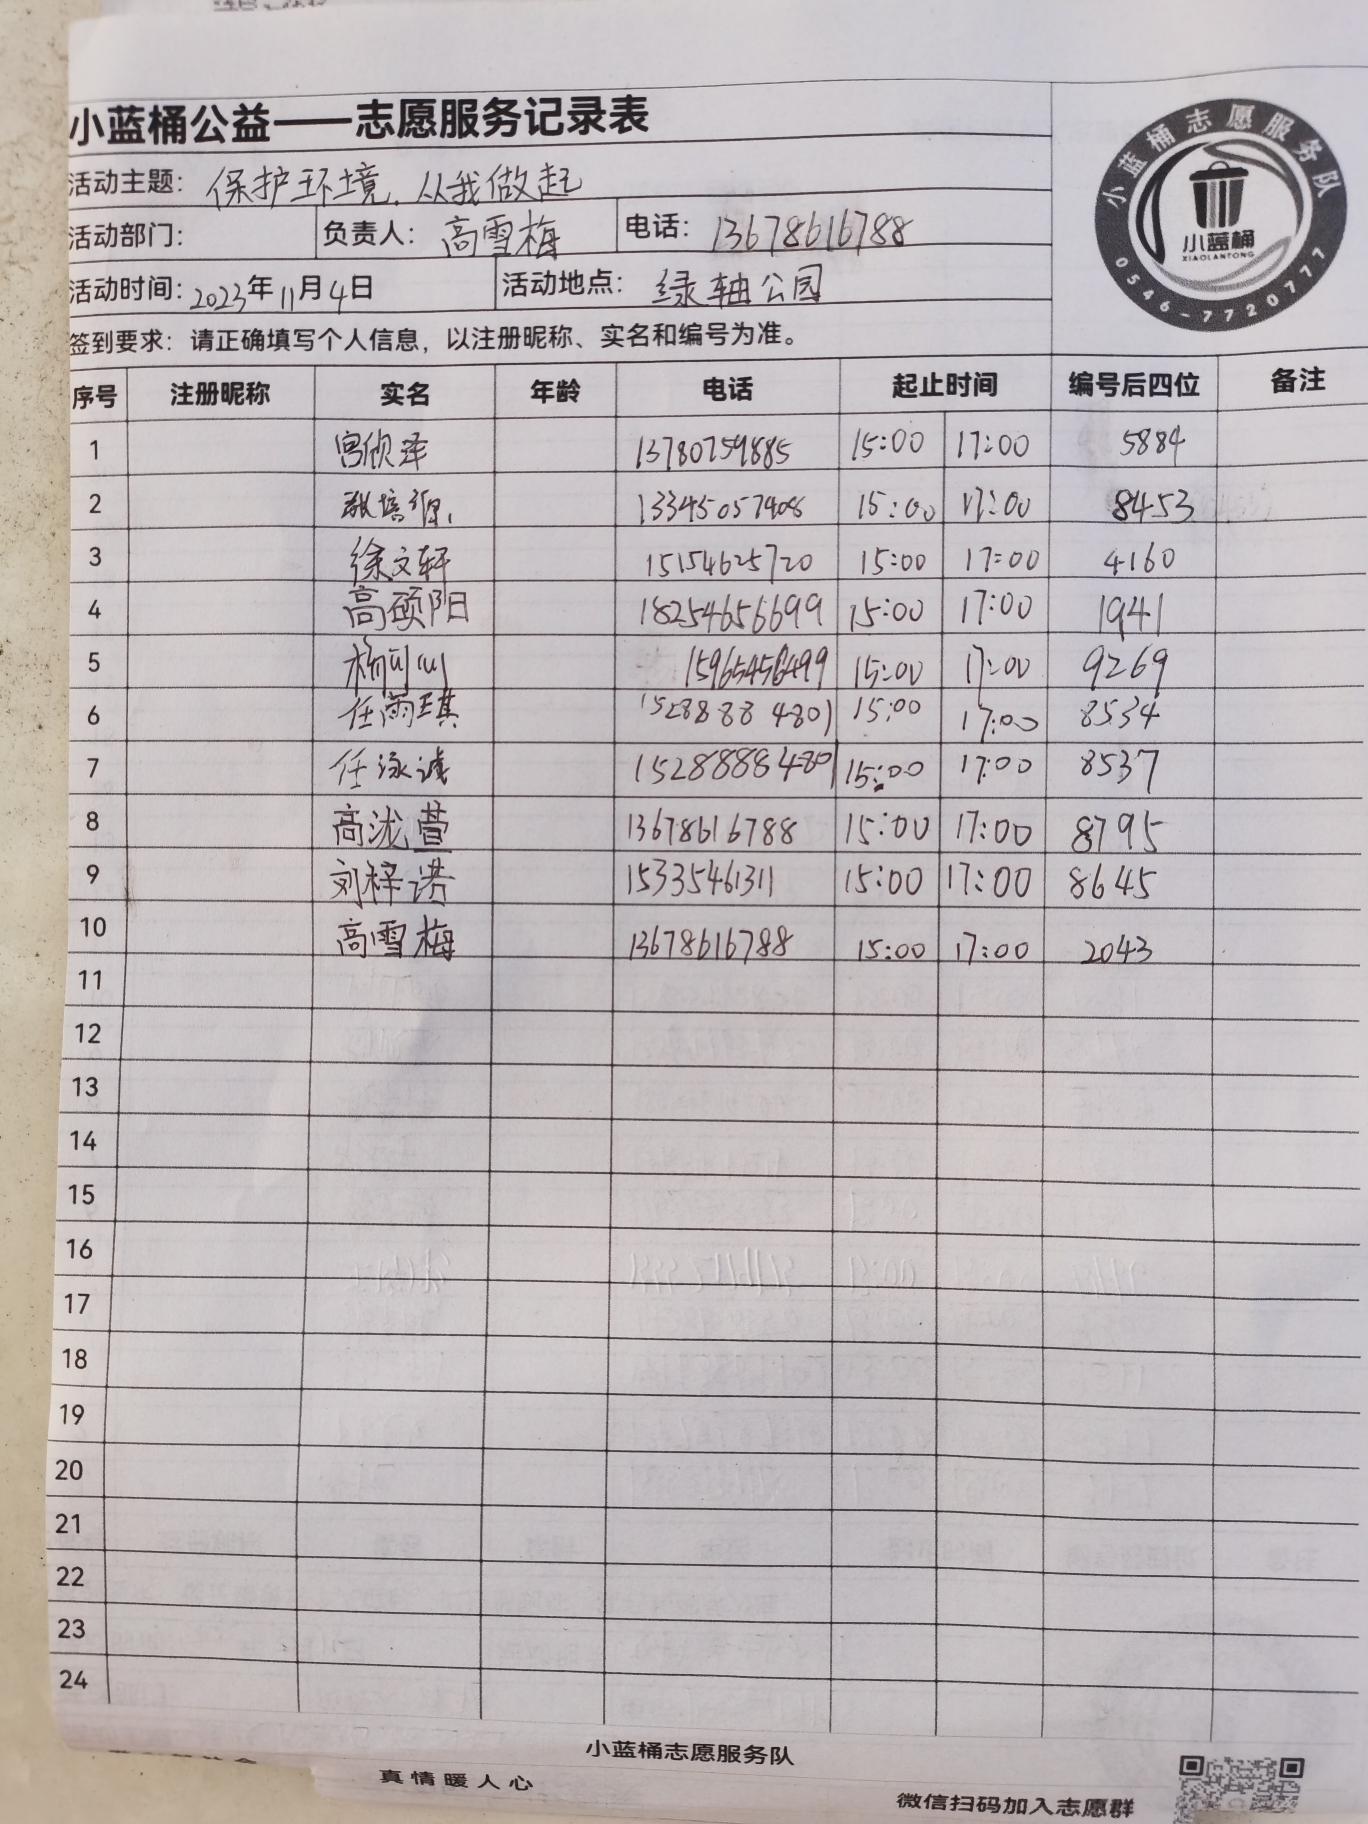 小蓝桶公益——志愿服务记录表
活动主题: 保护环境,从我做起
活动部门: 负责人: 高雪梅 电话: 13678616788
活动时间: 2023年11月4日 活动地点: 绿轴公园
签到要求: 请正确填写个人信息, 以注册昵称、实名和编号为准。
小蓝桶志愿服务队
小蓝桶
XIAOLANTONG
0546-7720777
序号 注册昵称 实名 年龄 电话 起止时间 编号后四位 备注
1 宫欣泽 13780759885 15:00 17:00 5884
2 张培源 13345057408 15:00 17:00 8453
3 徐文轩 15154625720 15:00 17:00 4160
4 高硕阳 18254656699 15:00 17:00 1941
5 杨可心 15965456499 15:00 17:00 9269
6 任雨琪 15288884801 15:00 17:00 8534
7 任泳诚 15288884801 15:00 17:00 8537
8 高泷萱 13678616788 15:00 17:00 8795
9 刘梓诺 15335461311 15:00 17:00 8645
10 高雪梅 13678616788 15:00 17:00 2043
11
12
13
14
15
16
17
18
19
20
21
22
23
24
小蓝桶志愿服务队
真情暖人心
微信扫码加入志愿群